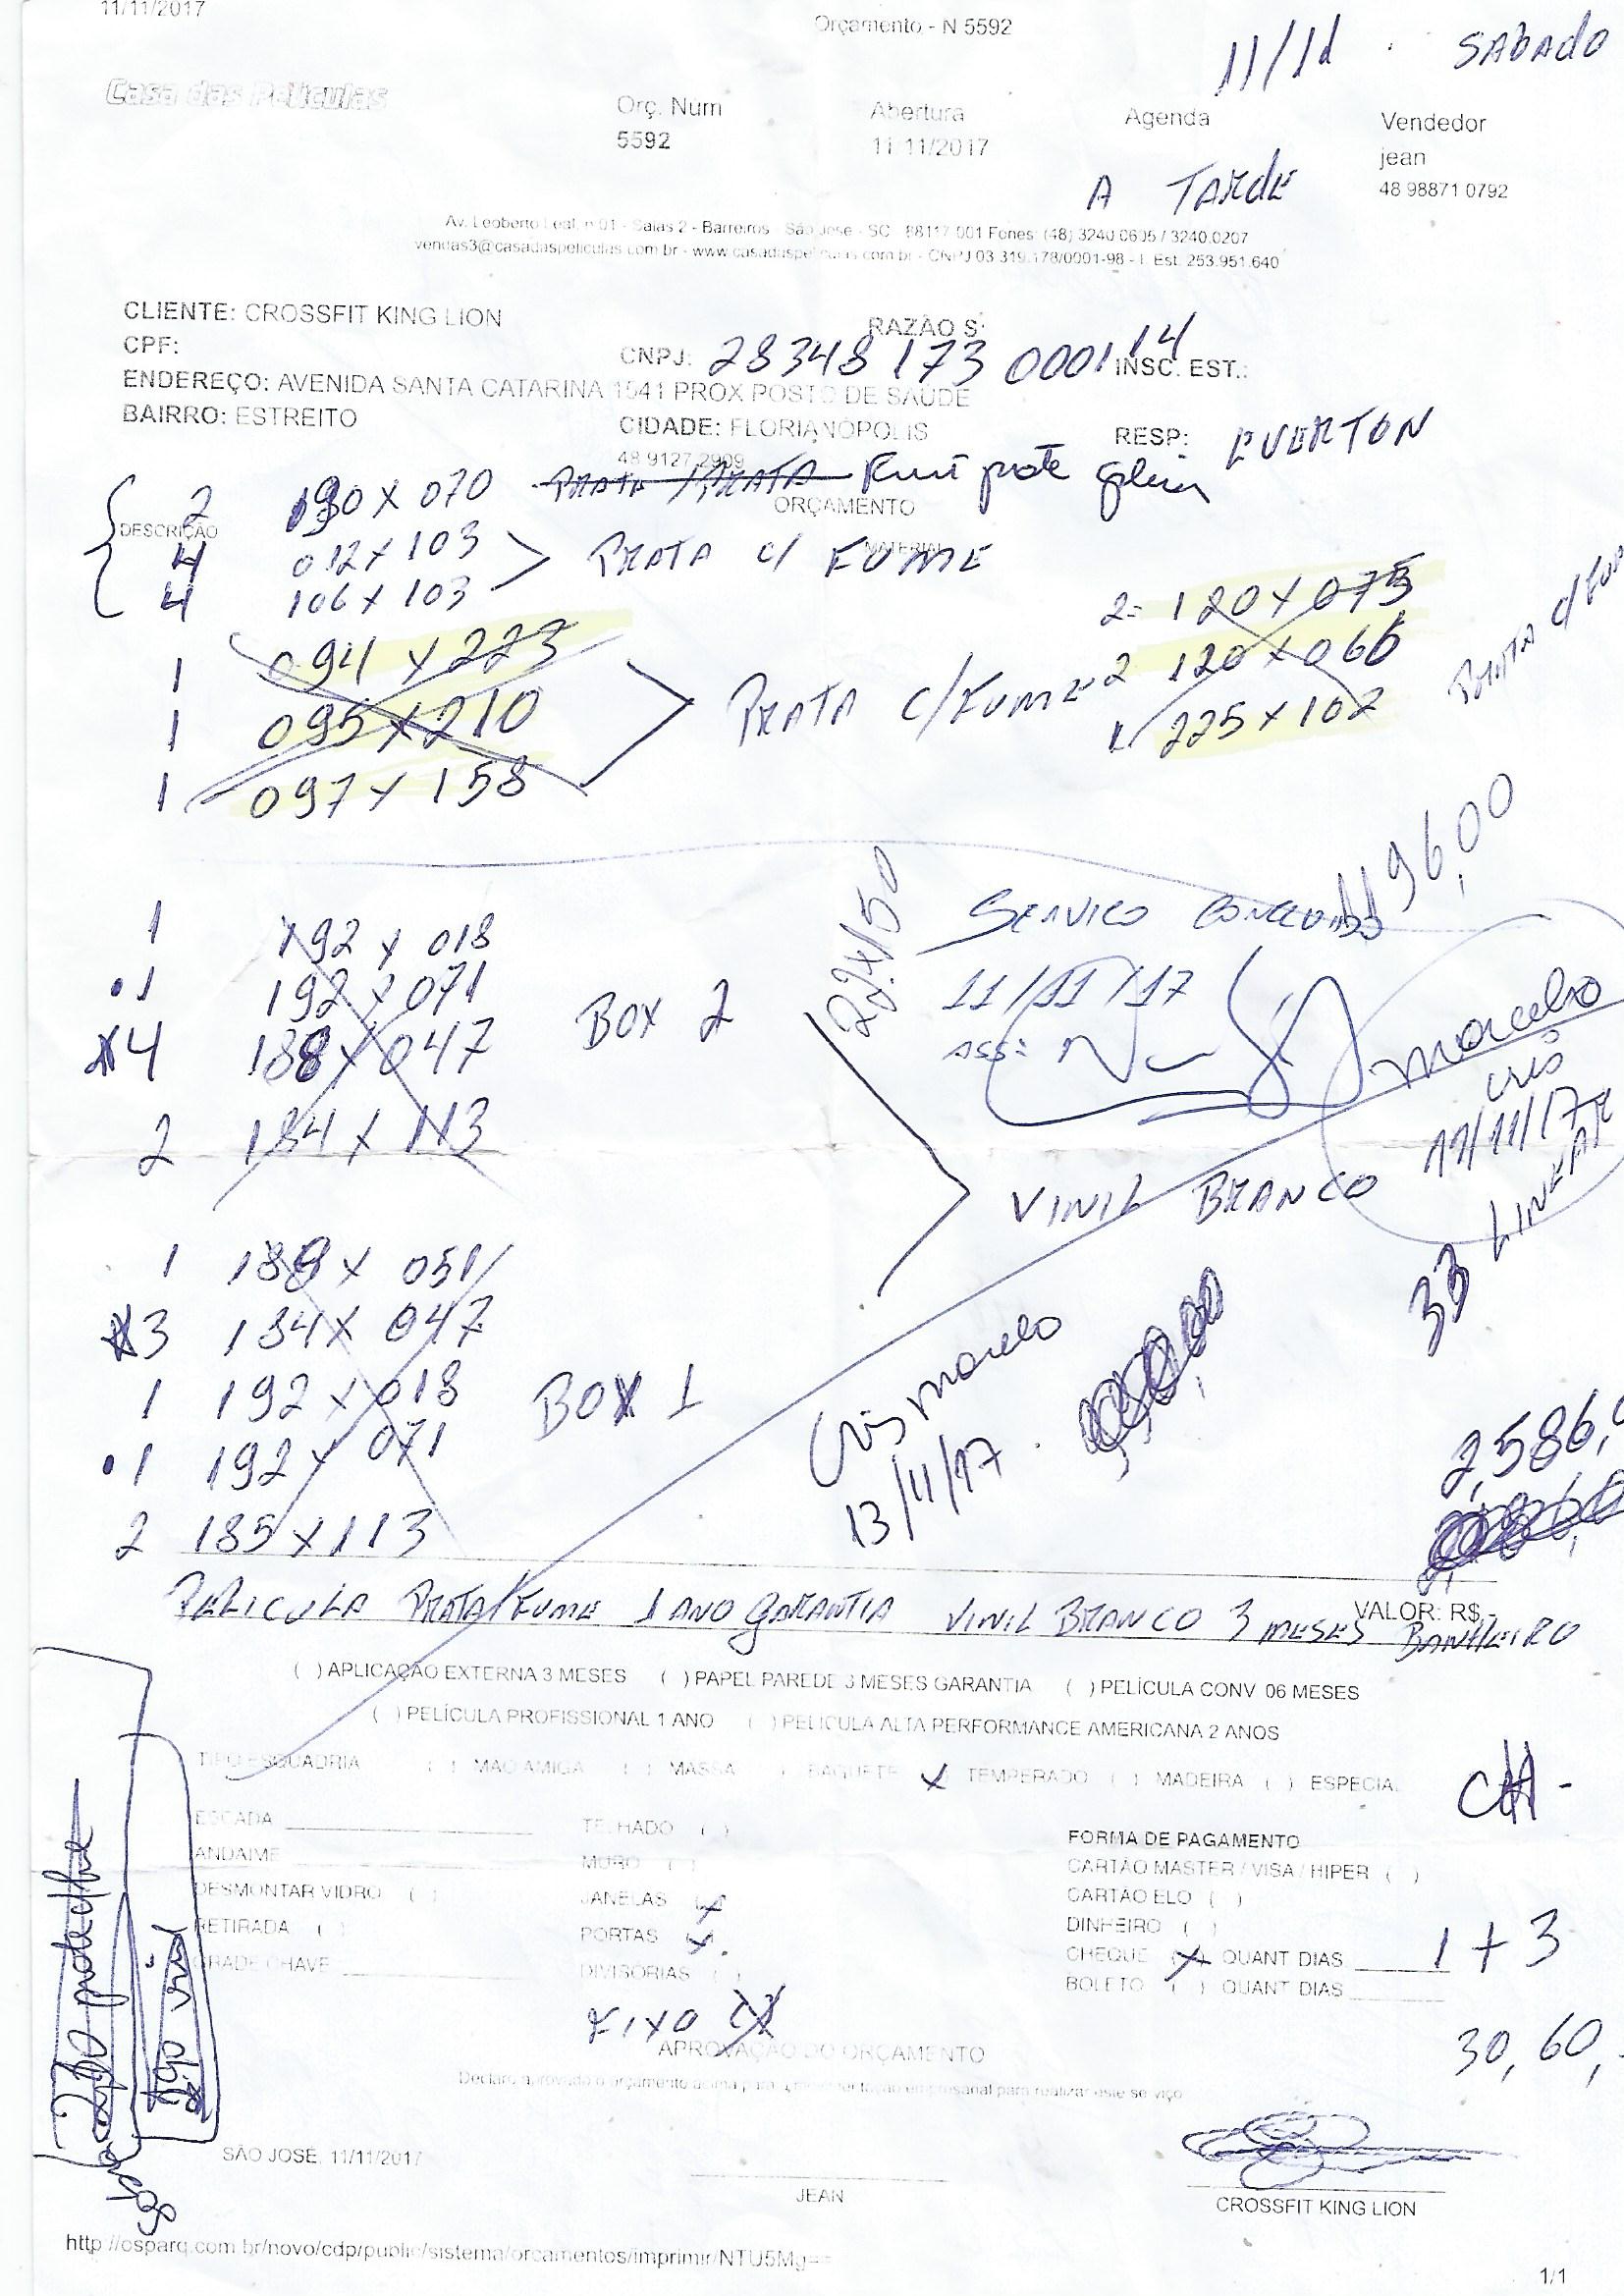 11/11/2017
Orçamento - N 5592
11/11 . SABADO
Casa das Películas
Orç. Num
5592
Abertura
11/11/2017
Agenda
A TARDE
Vendedor
jean
48 98871 0792
Av. Leoberto Leal, n 01 - Salas 2 - Barreiros - São José - SC - 88117 001 Fones: (48) 3240.0605 / 3240.0207
vendas3@casadaspeliculas.com.br - www.casadaspeliculas.com.br - CNPJ 03.319.178/0001-98 - I. Est. 253.951.640
CLIENTE: CROSSFIT KING LION
RAZÃO S:
CPF:
CNPJ: 28348 173 0001 14 INSC. EST.:
ENDEREÇO: AVENIDA SANTA CATARINA 1541 PROX POSTO DE SAÚDE
BAIRRO: ESTREITO
CIDADE: FLORIANÓPOLIS
RESP: EVERTON
48 9127 2909
ORÇAMENTO
2 190 X 070 PRATA / PRATA
DESCRIÇÃO
MATERIAL
4 012 X 103
4 106 X 103
PRATA C/ FUME
1 094 X 223
1 095 X 210
1 097 X 158
PRATA C/FUME
2= 120 X 075
2 120 X 060
1 225 X 102
PRATA C/FUM
1196,00
1 192 X 018
.1 192 X 071
4 188 X 047
2 184 X 113
BOX 2
SERVICO CONCLUIDO
11/11/17
ASS:
marcelo
cris
VINIL BRANCO
33 LINEAR
1 189 X 051
3 184 X 047
1 192 X 018
.1 192 X 071
2 185 X 113
BOX 1
Cris marcelo
13/11/17
2,586,
PELICULA PRATA/FUME 1 ANO GARANTIA VINIL BRANCO 3 MESES BANHEIRO
VALOR: R$
( ) APLICAÇÃO EXTERNA 3 MESES ( ) PAPEL PAREDE 3 MESES GARANTIA ( ) PELÍCULA CONV 06 MESES
( ) PELÍCULA PROFISSIONAL 1 ANO ( ) PELICULA ALTA PERFORMANCE AMERICANA 2 ANOS
TIPO ESQUADRIA ( ) MAO AMIGA ( ) MASSA ( ) BAQUETE X TEMPERADO ( ) MADEIRA ( ) ESPECIAL
ESCADA
ANDAIME
DESMONTAR VIDRO ( )
RETIRADA ( )
GRADE CHAVE
TELHADO ( )
MURO ( )
JANELAS (X)
PORTAS (X)
DIVISORIAS ( )
FIXO
FORMA DE PAGAMENTO
CARTÃO MASTER / VISA / HIPER ( )
CARTÃO ELO ( )
DINHEIRO ( )
CHEQUE (X) QUANT DIAS 1 + 3
BOLETO ( ) QUANT DIAS
30, 60,
APROVAÇÃO DO ORÇAMENTO
SÃO JOSÉ, 11/11/2017
JEAN
CROSSFIT KING LION
http://osparq.com.br/novo/cdp/public/sistema/orcamentos/imprimir/NTU5Mg==
1/1